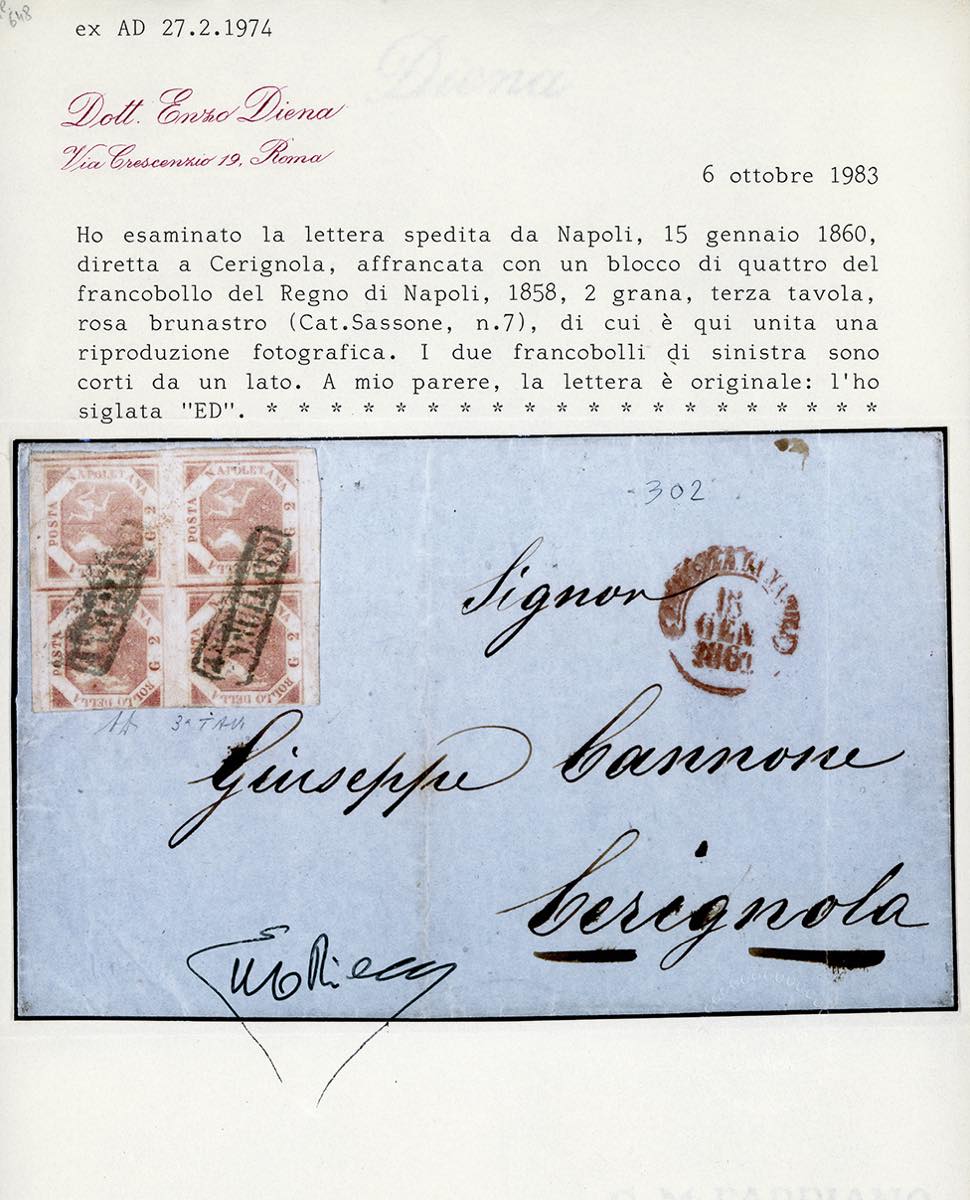 648
ex AD 27.2.1974
Diena
Dott. Enzo Diena
Via Crescenzio 19, Roma
6 ottobre 1983
Ho esaminato la lettera spedita da Napoli, 15 gennaio 1860,
diretta a Cerignola, affrancata con un blocco di quattro del
francobollo del Regno di Napoli, 1858, 2 grana, terza tavola,
rosa brunastro (Cat.Sassone, n.7), di cui è qui unita una
riproduzione fotografica. I due francobolli di sinistra sono
corti da un lato. A mio parere, la lettera è originale: l'ho
siglata "ED". * * * * * * * * * * * * * * * * * * *
POSTA NAPOLETANA G 2
POSTA NAPOLETANA G 2
POSTA G 2 BOLLO DELLA
G 2 BOLLO DELLA
ANNULLATO
302
Signor
GEN
3ª TAV
Giuseppe Cannone
Cerignola